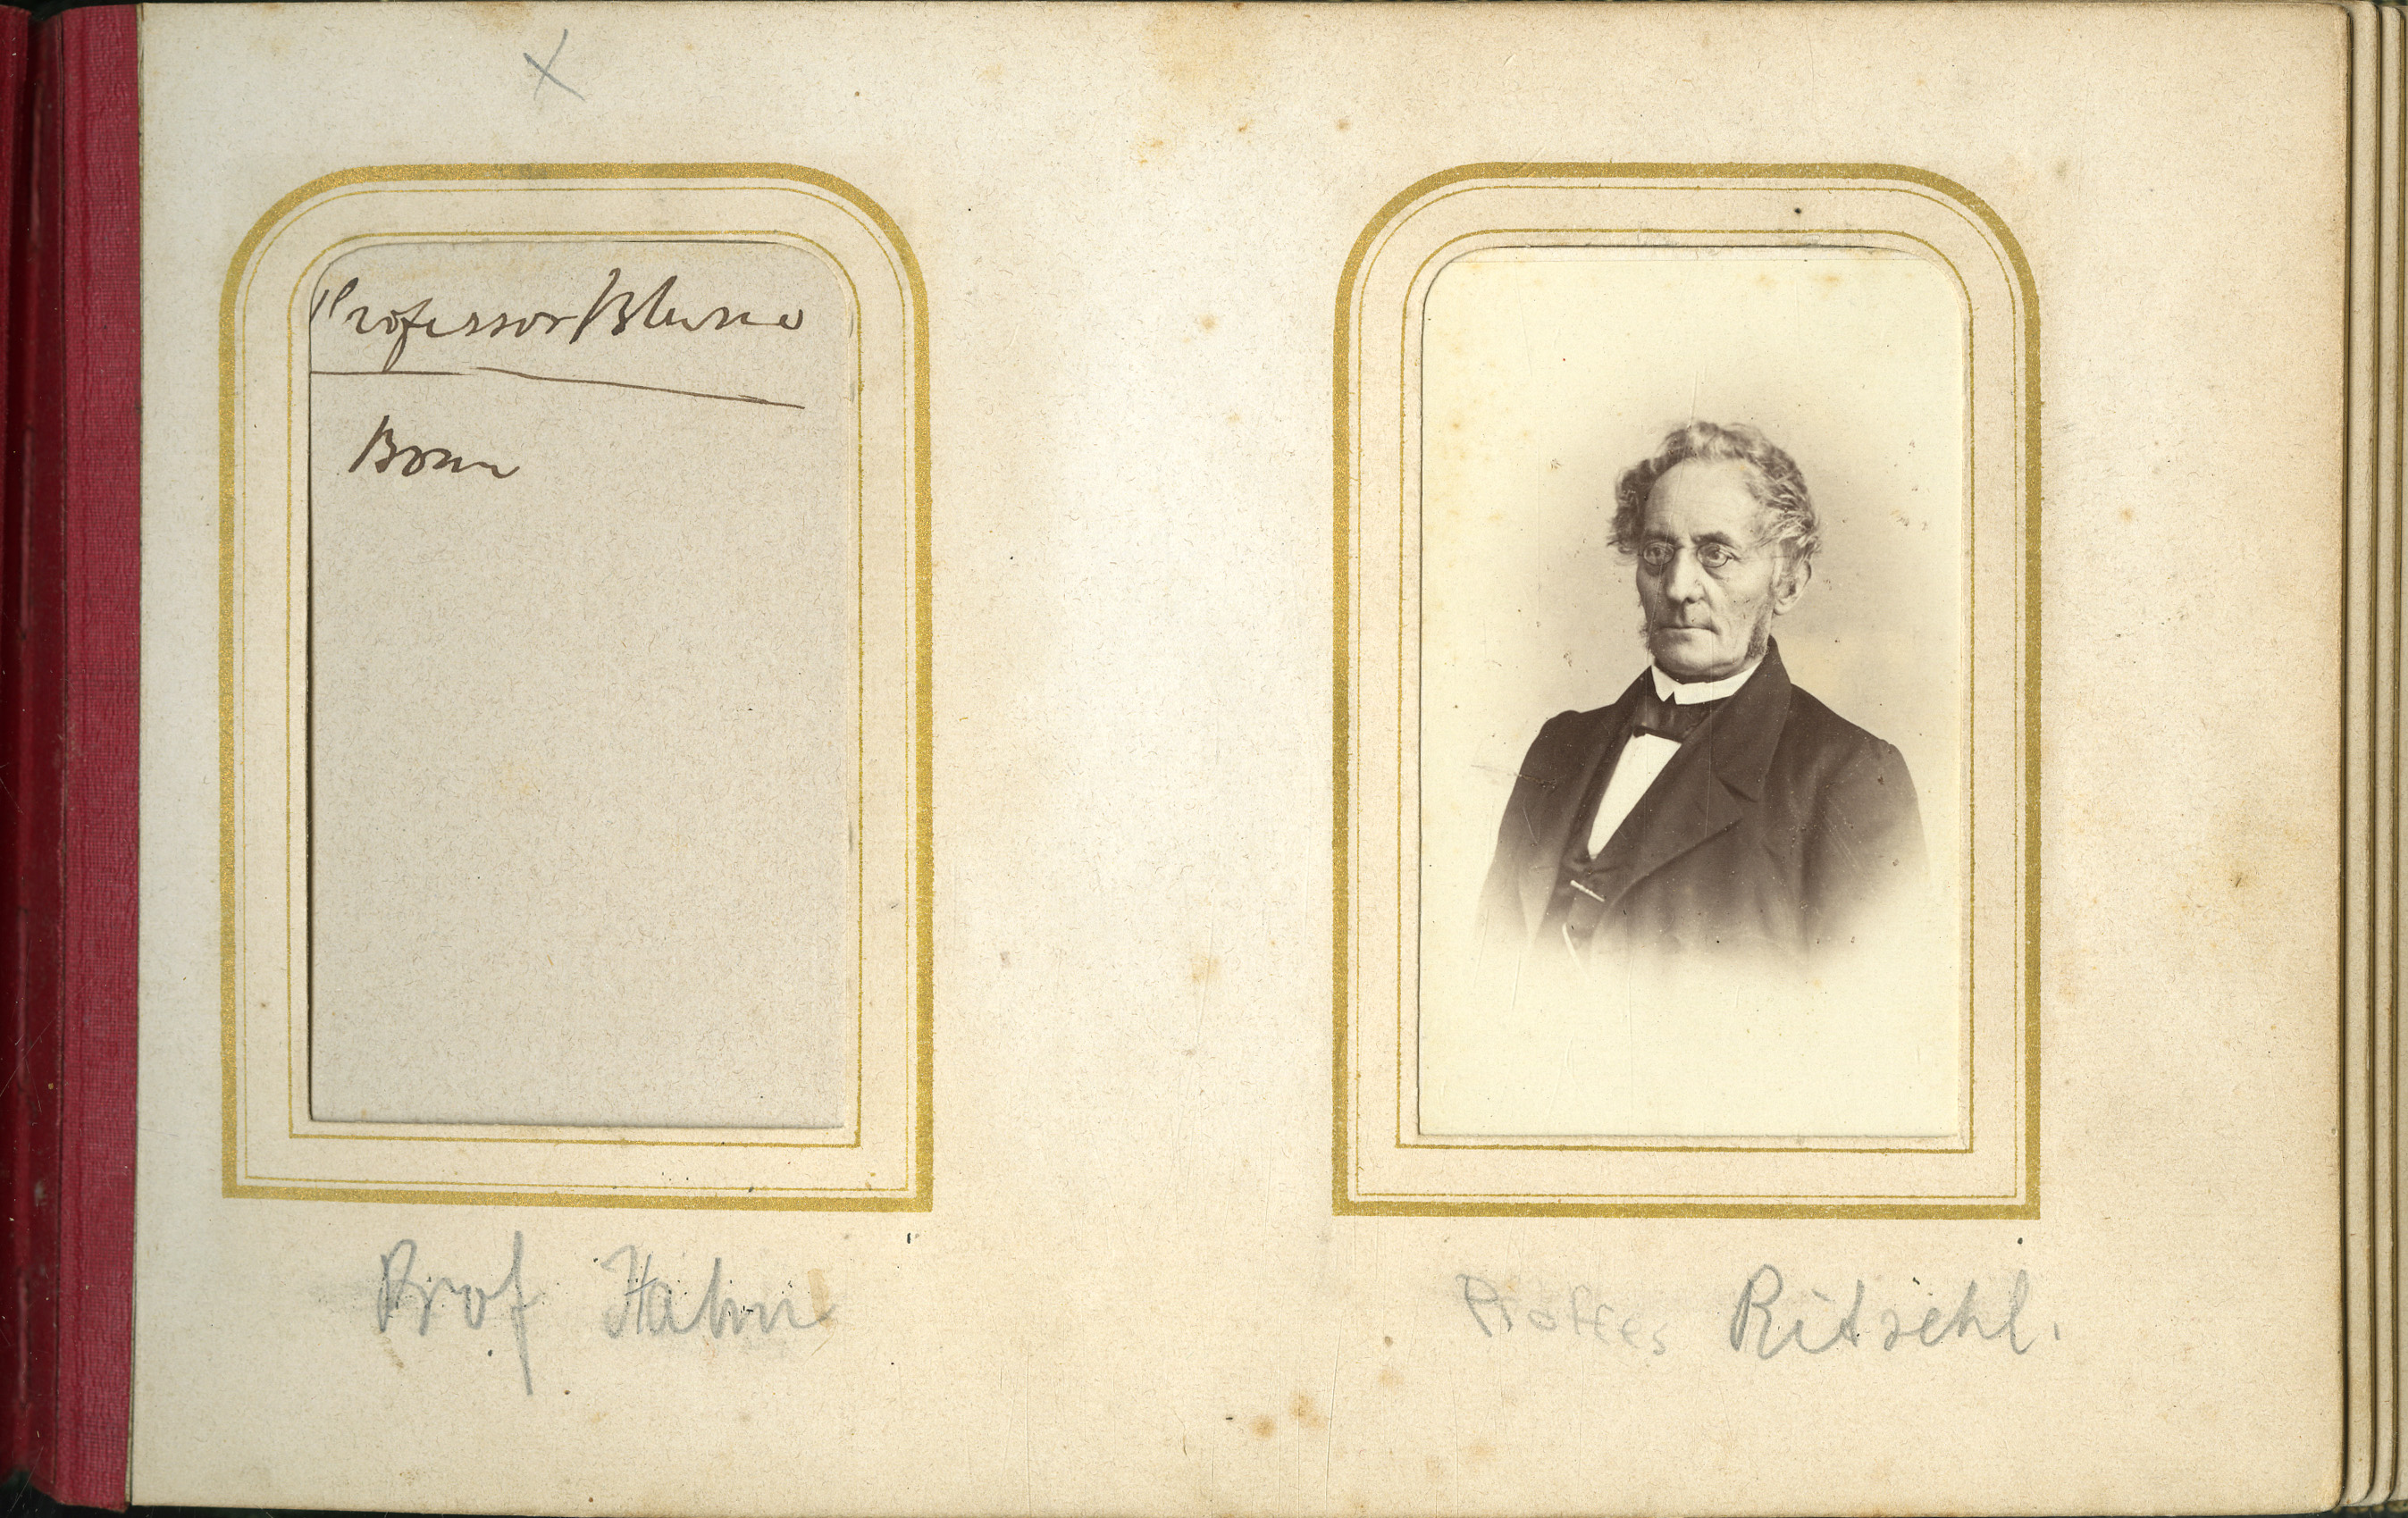 Professor Blume
Bonn
Prof Hahn
Proffes Ritschl.